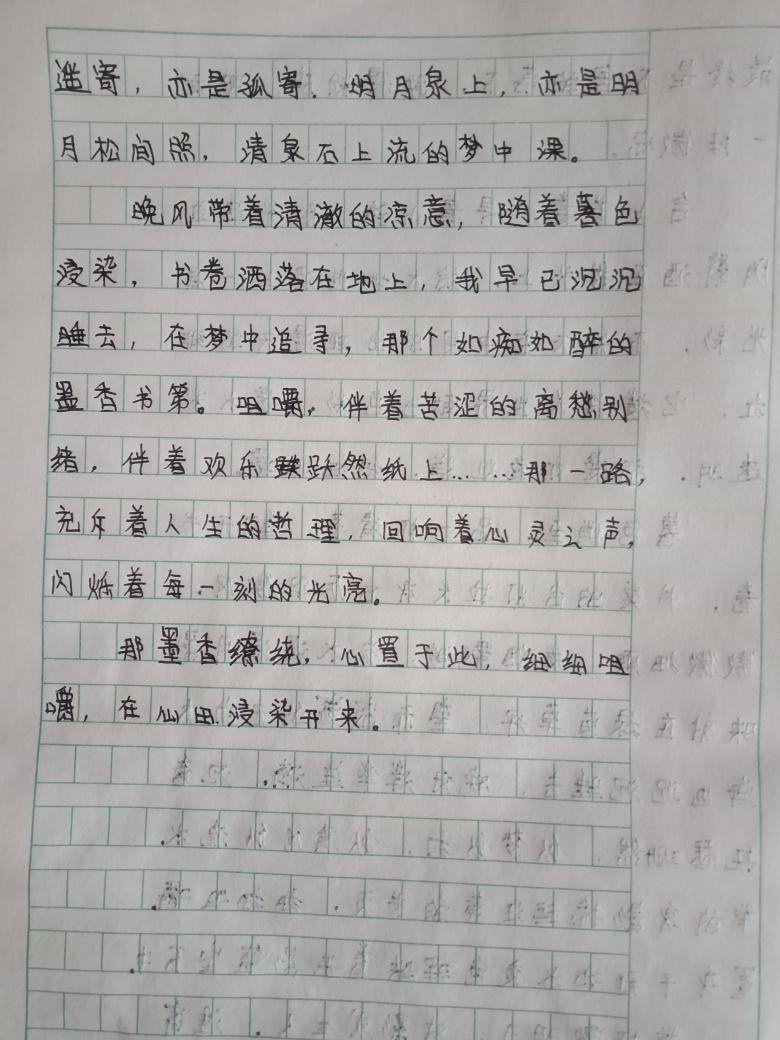 遥寄，亦是孤寄．明月泉上，亦是明
月松间照，清泉石上流的梦中课。
晚风带着清澈的凉意，随着暮色
浸染，书卷洒落在地上，我早已沉沉
睡去，在梦中追寻，那个如痴如醉的
墨香书第。咀嚼，伴着苦涩的离愁别
绪，伴着欢乐跃然纸上……那一路，
充斥着人生的哲理，回响着心灵之声，
闪烁着每一刻的光亮。
那墨香缭绕，心置于此，细细咀
嚼，在心田浸染开来。